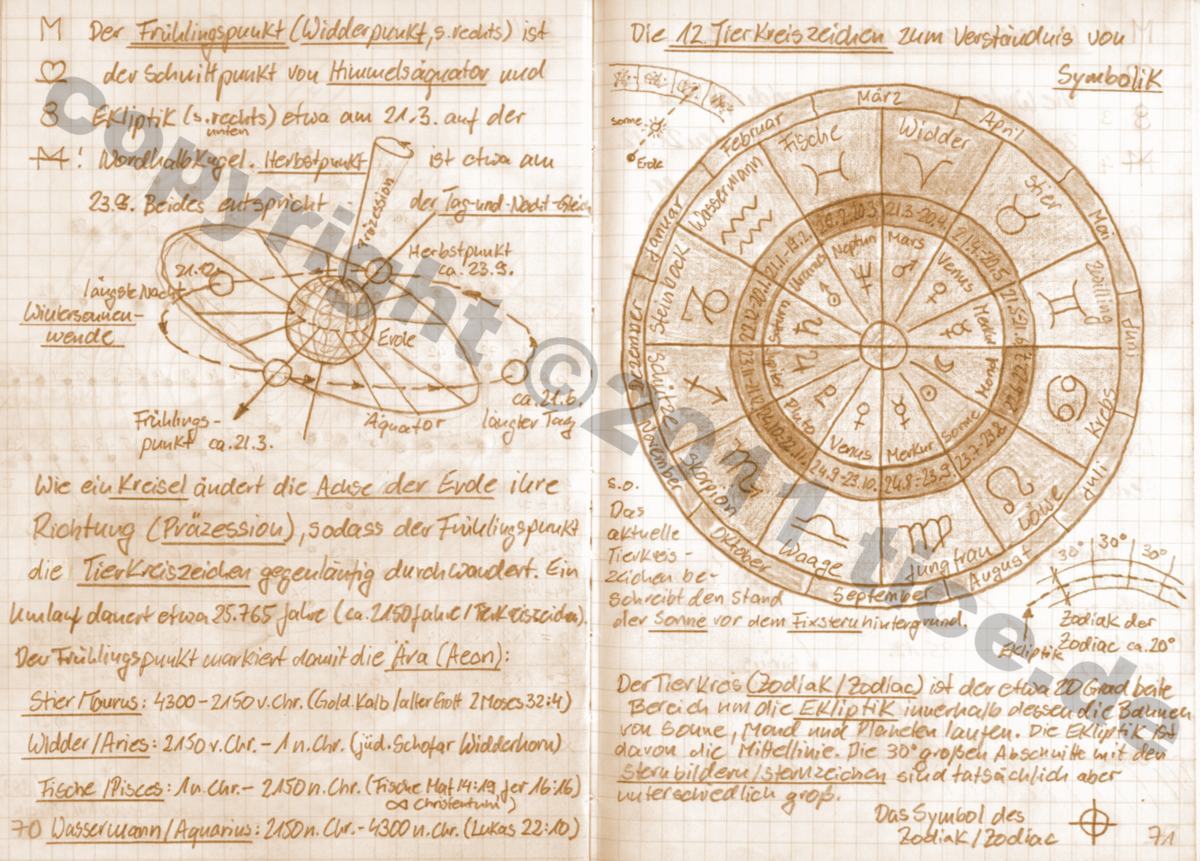 M Der Frühlingspunkt (Widderpunkt, s. rechts) ist
der Schnittpunkt von Himmelsäquator und
Ekliptik (s. rechts) etwa am 21.3. auf der
unten
! Nordhalbkugel. Herbstpunkt ist etwa am
23.9. Beides entspricht der Tag-und-Nacht-Gleich
Präzession
Herbstpunkt
ca. 23.9.
21.12.
längste Nacht
Wintersonnen-
wende
Erde
ca. 21.6.
längster Tag
Frühlings-
punkt ca. 21.3.
Äquator
Wie ein Kreisel ändert die Achse der Erde ihre
Richtung (Präzession), sodass der Frühlingspunkt
die Tierkreiszeichen gegenläufig durchwandert. Ein
Umlauf dauert etwa 25.765 Jahre (ca. 2150 Jahre/Tierkreiszeichen).
Der Frühlingspunkt markiert damit die Ära (Aeon):
Stier/Taurus: 4300 - 2150 v. Chr. (Gold. Kalb/alter Gott 2 Moses 32:4)
Widder/Aries: 2150 v. Chr. - 1 n. Chr. (jüd. Schofar Widderhorn)
Fische/Pisces: 1 n. Chr. - 2150 n. Chr. (Fische Mat 14:19, Jer 16:16)
∝ Christentum
Wassermann/Aquarius: 2150 n. Chr. - 4300 n. Chr. (Lukas 22:10)
70
Die 12 Tierkreiszeichen zum Verständnis von
Symbolik
Sonne
Erde
Januar
Februar
März
April
Mai
Juni
Juli
August
September
Oktober
November
Dezember
Wassermann
Fische
Widder
Stier
Zwilling
Krebs
Löwe
Jungfrau
Waage
Skorpion
Schütze
Steinbock
21.1.-19.2.
20.2.-20.3.
21.3.-20.4.
21.4.-20.5.
23.7.-23.8.
24.8.-23.9.
24.9.-23.10.
Uranus
Neptun
Mars
Venus
Merkur
Mond
Sonne
Merkur
Venus
Pluto
Jupiter
Saturn
s.o.
Das
aktuelle
Tierkreis-
zeichen be-
schreibt den Stand
der Sonne vor dem Fixsternhintergrund.
30° 30° 30°
Ekliptik
Zodiak der
Zodiac ca. 20°
Der Tierkreis (Zodiak/Zodiac) ist der etwa 20 Grad breite
Bereich um die Ekliptik innerhalb dessen die Bahnen
von Sonne, Mond und Planeten laufen. Die Ekliptik ist
davon die Mittellinie. Die 30° großen Abschnitte mit den
Sternbildern/Sternzeichen sind tatsächlich aber
unterschiedlich groß.
Das Symbol des
Zodiak/Zodiac
71
copyright © 2011 tice.de